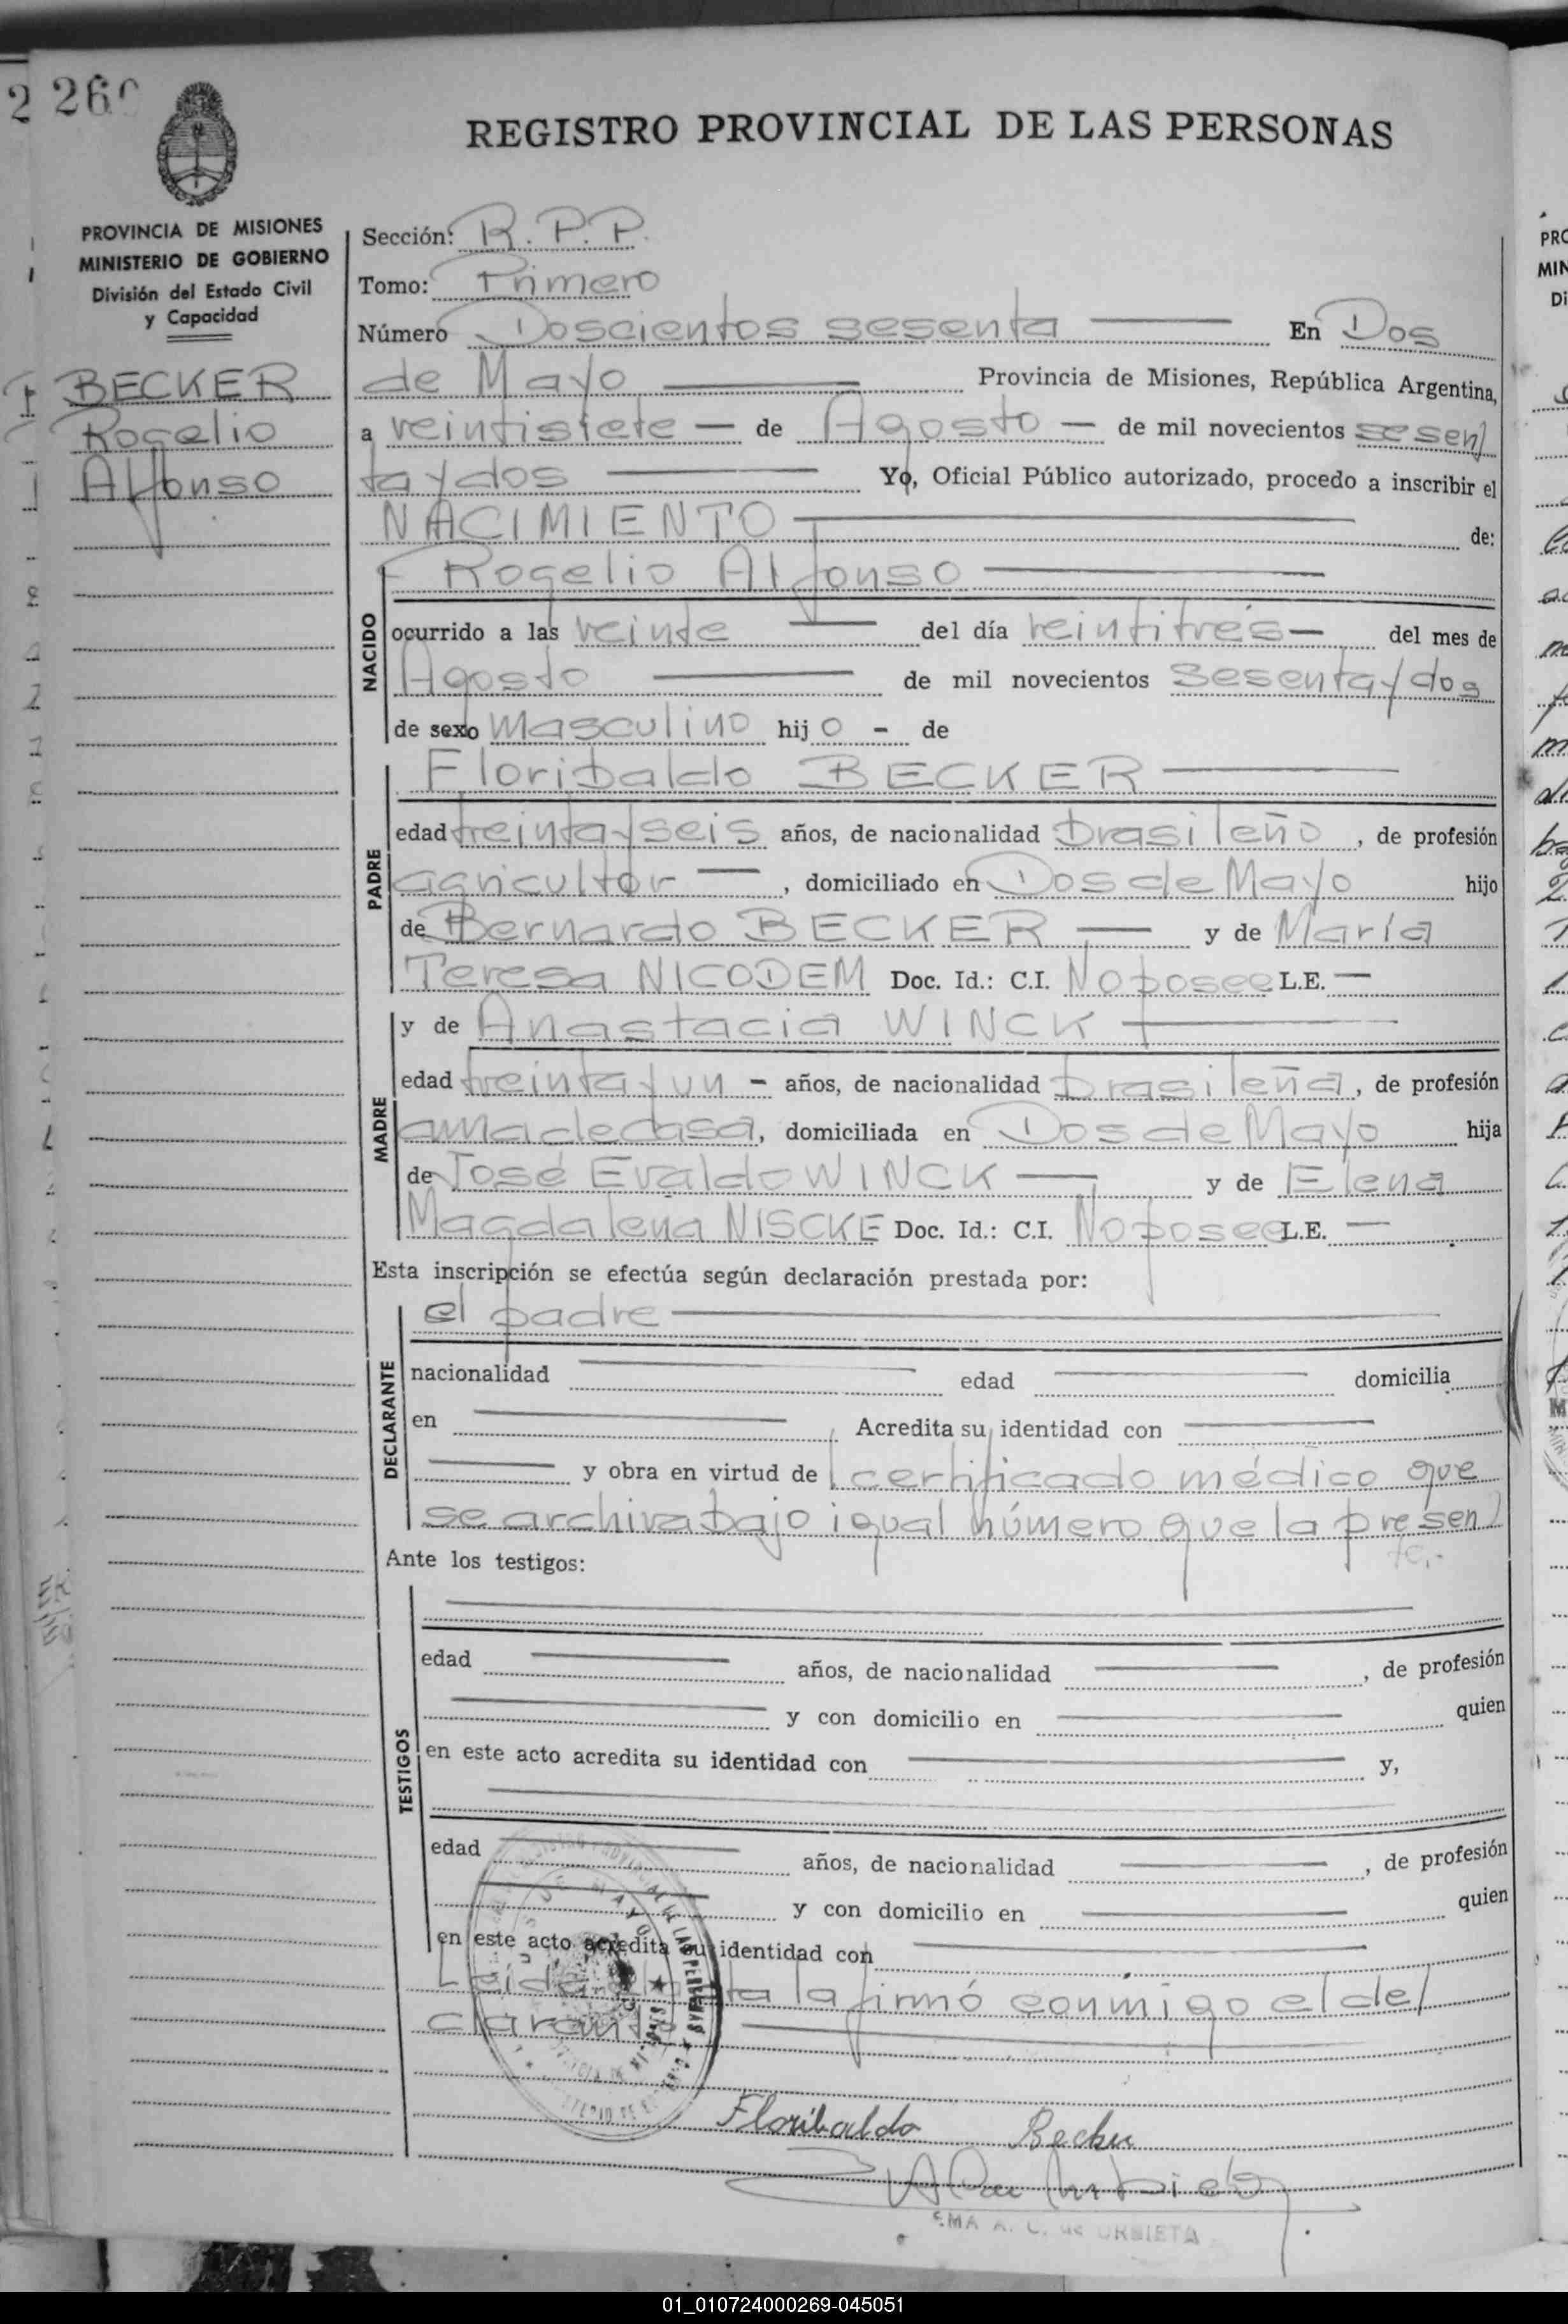 260
REGISTRO PROVINCIAL DE LAS PERSONAS
PROVINCIA DE MISIONES
MINISTERIO DE GOBIERNO
División del Estado Civil
y Capacidad
BECKER
Rogelio
Alfonso
Sección: R.P.P.
Tomo: Primero
Número Doscientos sesenta En Dos
de Mayo Provincia de Misiones, República Argentina,
a veintisiete de Agosto de mil novecientos sesen
ta y dos Yo, Oficial Público autorizado, procedo a inscribir el
NACIMIENTO de:
NACIDO
Rogelio Alfonso
ocurrido a las veinte del día veintitrés del mes de
Agosto de mil novecientos sesenta y dos
de sexo masculino hijo - de
PADRE
Floribaldo BECKER
edad treinta y seis años, de nacionalidad brasileño, de profesión
agricultor, domiciliado en Dos de Mayo hijo
de Bernardo BECKER y de María
Teresa NICODEM Doc. Id.: C.I. No posee L.E. —
MADRE
y de Anastacia WINCK
edad treinta y un - años, de nacionalidad brasileña, de profesión
ama de casa, domiciliada en Dos de Mayo hija
de José Evaldo WINCK y de Elena
Magdalena NISCKE Doc. Id.: C.I. No posee L.E. —
Esta inscripción se efectúa según declaración prestada por:
DECLARANTE
el padre
nacionalidad edad domicilia
en Acredita su identidad con
y obra en virtud de certificado médico que
se archiva bajo igual número que la presen
te.-
Ante los testigos:
TESTIGOS
edad años, de nacionalidad, de profesión
y con domicilio en quien
en este acto acredita su identidad con y,
edad años, de nacionalidad, de profesión
y con domicilio en quien
en este acto acredita su identidad con
Leída el acta la firmó conmigo el de
clarante
Floribaldo Becker
A. C. de URBIETA
01_010724000269-045051